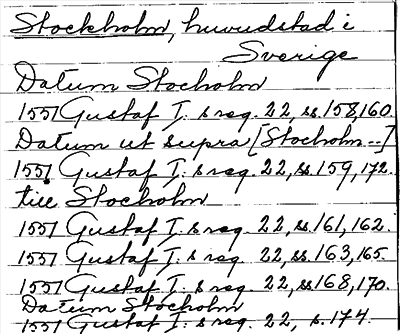 Stockholm, huvudstad i
Sverige
Datum Stocholm
1551 Gustaf I:s reg. 22, ss. 158, 160.
Datum ut supra [Stocholm --]
1551 Gustaf I:s reg. 22, ss. 159, 172.
till Stocholm
1551 Gustaf I:s reg. 22, ss. 161, 162.
1551 Gustaf I:s reg. 22, ss. 163, 165.
1551 Gustaf I:s reg. 22, ss. 168, 170.
Datum Stocholm
1551 Gustaf I:s reg. 22, s. 174.